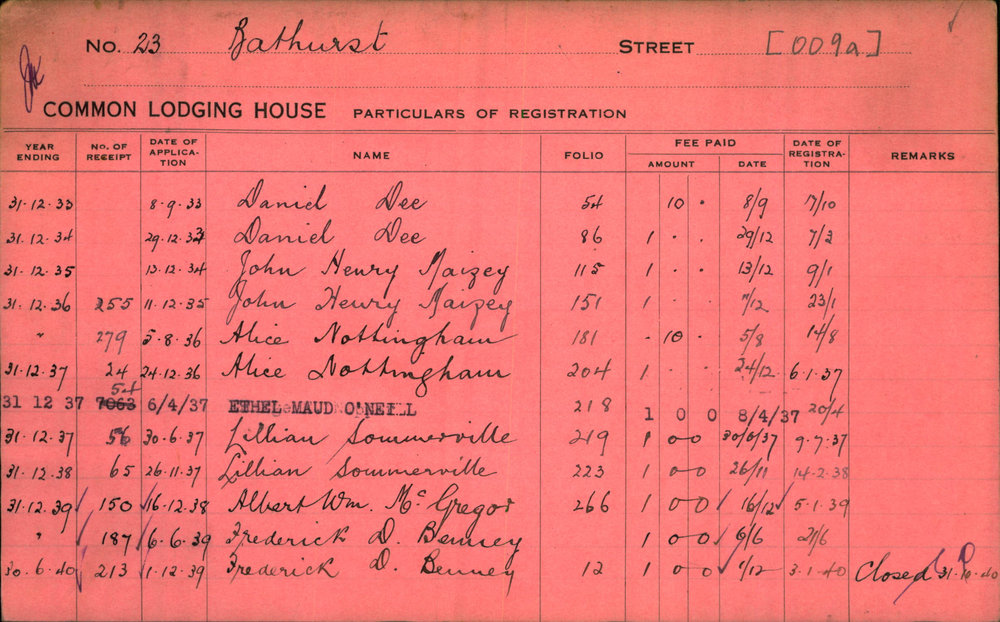 No. 23 Bathurst STREET [009a]
COMMON LODGING HOUSE PARTICULARS OF REGISTRATION
YEAR ENDING No. OF RECEIPT DATE OF APPLICA-TION NAME FOLIO FEE PAID AMOUNT DATE DATE OF REGISTRA-TION REMARKS
31.12.33 8.9.33 Daniel Dee 54 10 . 8/9 7/10
31.12.34 29.12.33 Daniel Dee 86 1 . . 29/12 7/2
31.12.35 13.12.34 John Henry Maizey 115 1 . . 13/12 9/1
31.12.36 255 11.12.35 John Henry Maizey 151 1 . . 7/12 23/1
" 279 5.8.36 Alice Nottingham 181 . 10 . 5/8 14/8
31.12.37 24 24.12.36 Alice Nottingham 204 1 . . 24/12 6.1.37
54
31 12 37 7063 6/4/37 ETHEL MAUD O'NEILL 218 1 0 0 8/4/37 20/4
31.12.37 56 30.6.37 Lillian Sommerville 219 1 0 0 30/6/37 9.7.37
31.12.38 65 26.11.37 Lillian Sommerville 223 1 0 0 26/11 14.2.38
31.12.39 150 16.12.38 Albert Wm. McGregor 266 1 0 0 16/12 5.1.39
" 187 6.6.39 Frederick D. Benney 1 0 0 6/6 21/6
30.6.40 213 1.12.39 Frederick D. Benney 12 1 0 0 1/12 3.1.40 Closed 40